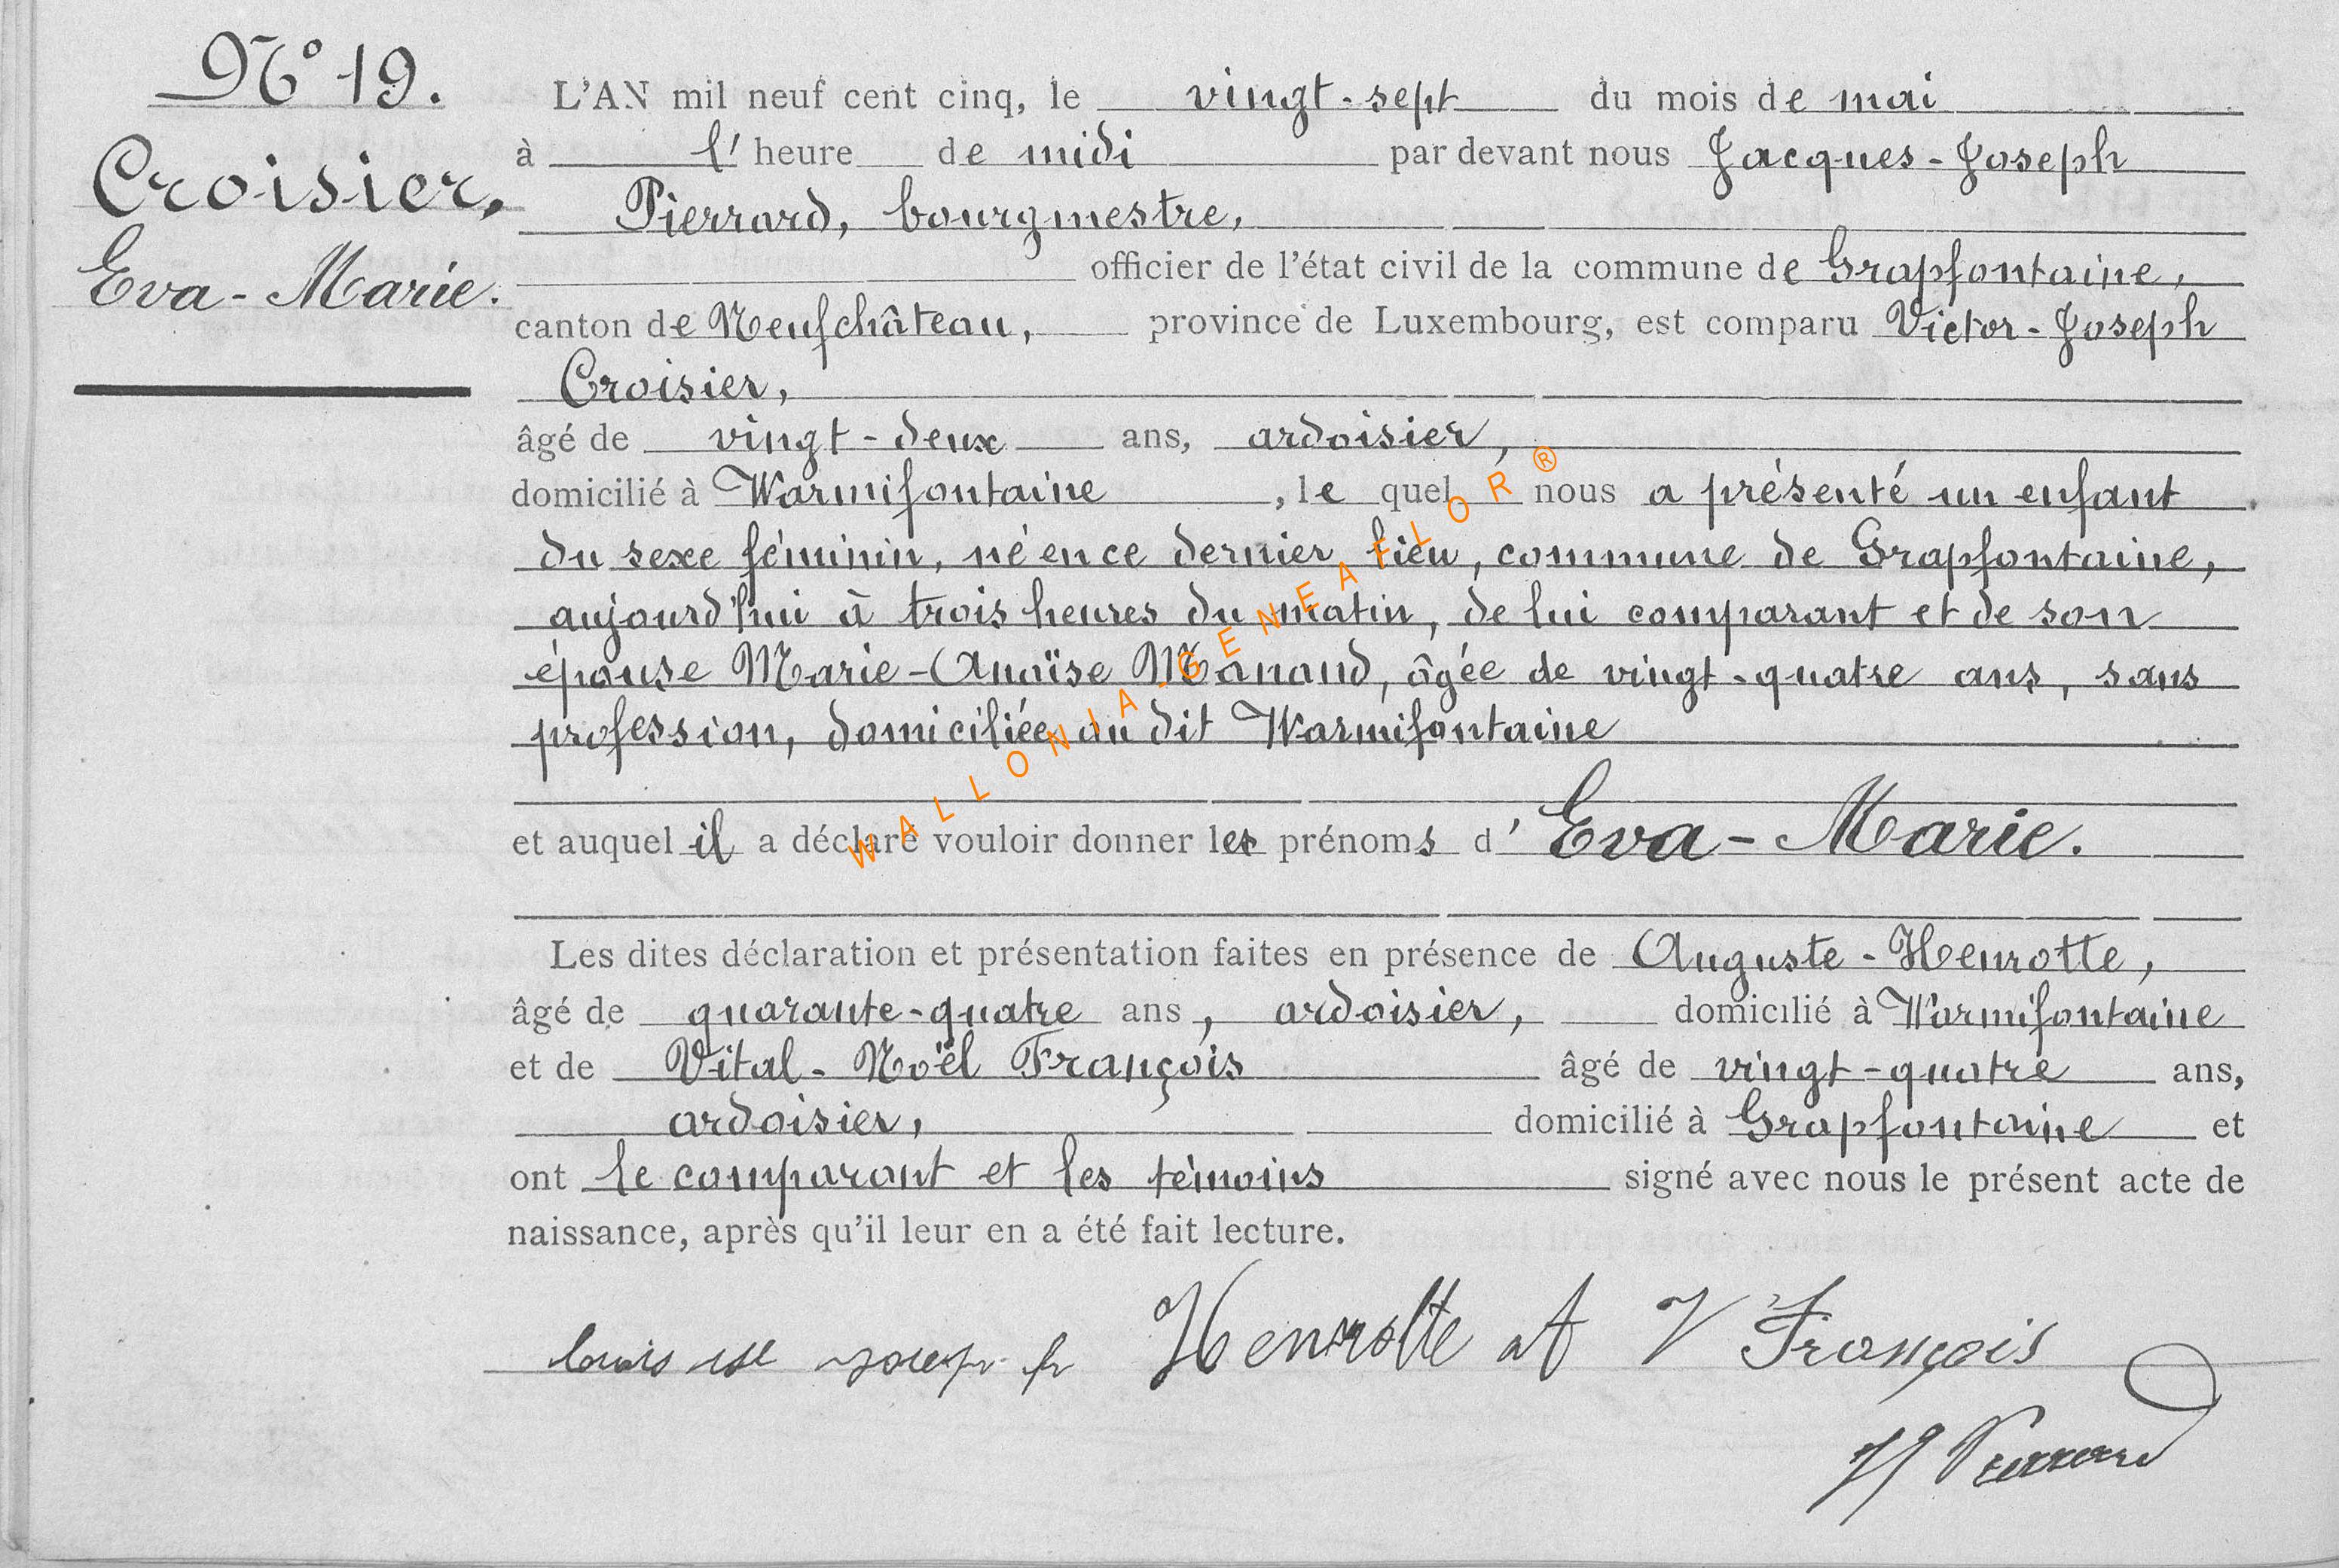 N° 19.
Croisier,
Eva-Marie.
L'AN mil neuf cent cinq, le vingt-sept du mois de mai
à l'heure de midi par devant nous Jacques-Joseph
Pierrard, bourgmestre,
officier de l'état civil de la commune de Grapfontaine,
canton de Neufchâteau, province de Luxembourg, est comparu Victor-Joseph
Croisier,
âgé de vingt-deux ans, ardoisier,
domicilié à Warmifontaine, le quel nous a présenté un enfant
du sexe féminin, né en ce dernier lieu, commune de Grapfontaine,
aujourd'hui à trois heures du matin, de lui comparant et de son
épouse Marie-Anaïse Manand, âgée de vingt-quatre ans, sans
profession, domiciliée au dit Warmifontaine
et auquel il a déclaré vouloir donner les prénoms d'Eva-Marie.
Les dites déclaration et présentation faites en présence de Auguste-Henrotte,
âgé de quarante-quatre ans, ardoisier, domicilié à Warmifontaine
et de Vital-Noël François âgé de vingt-quatre ans,
ardoisier, domicilié à Grapfontaine et
ont le comparant et les témoins signé avec nous le présent acte de
naissance, après qu'il leur en a été fait lecture.
Henrotte A V François
JJ Pierrard
WALLONIA-GENEAFLOR®